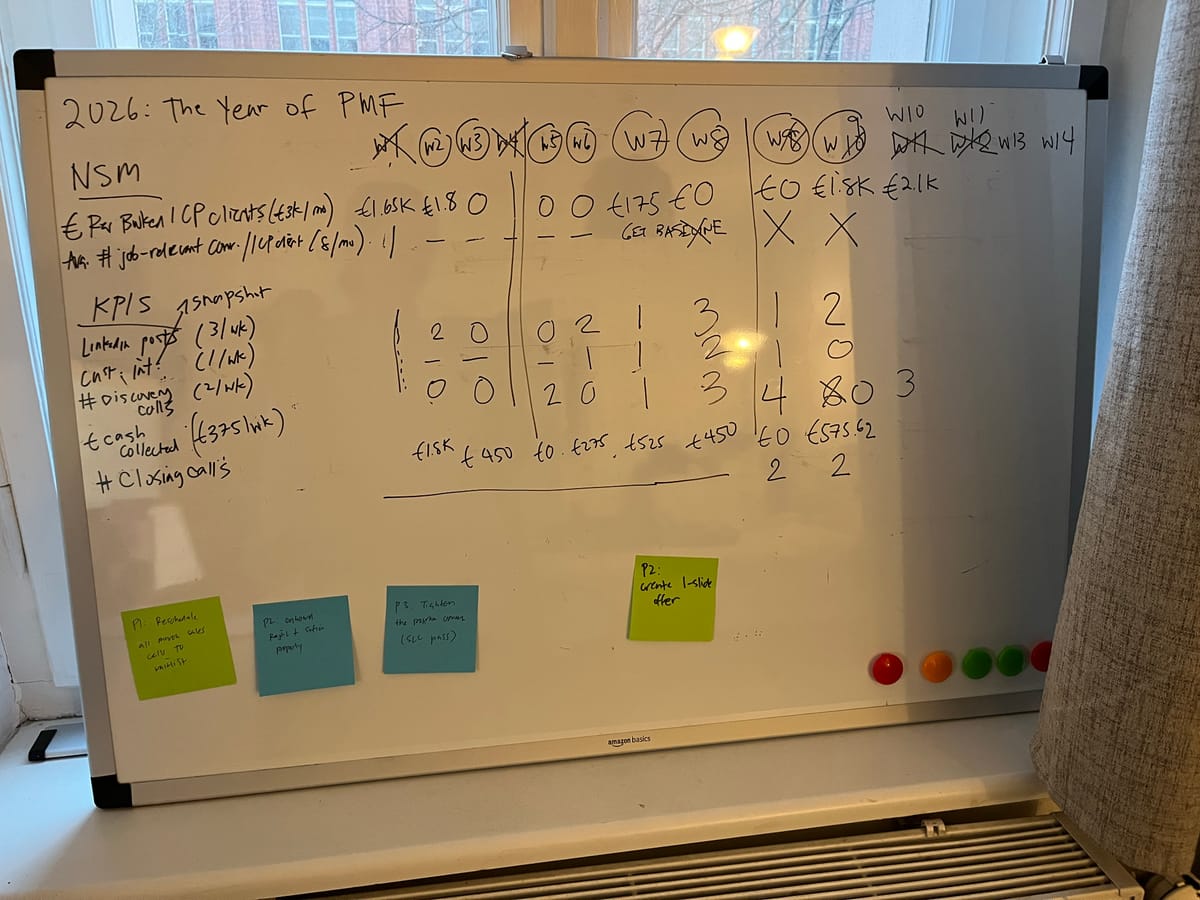 2026: The Year of PMF
W1 W2 W3 W4 W5 W6 W7 W8 W8 W10 W10 W11 W13 W14
9 W11 W12
NSM
€ Rev Booked / ICP clients (€3k/mo) €1.65K €1.8 0 0 0 €175 €0 €0 €1.8K €2.1K
Avg. # job-relevant conv. / ICP client (8/mo) - - - - - GET BASELINE X X
KPIs snapshot
Linkedin posts (3/wk) 2 0 0 2 1 3 1 2
Cust. int. (1/wk) - - - 1 1 2 1 0
# Discovery calls (2/wk) 0 0 2 0 1 3 4 0 3
€ cash collected (€375/wk) €1.8K €450 €0 €275 €525 €450 €0 €575.62
# Closing calls 2 2
P1: Reschedule
all march sales
calls to
waitlist
P2: onboard
properly
P3: Tighten
the
(SLC pass)
P2:
create 1-slide
offer
amazon basics